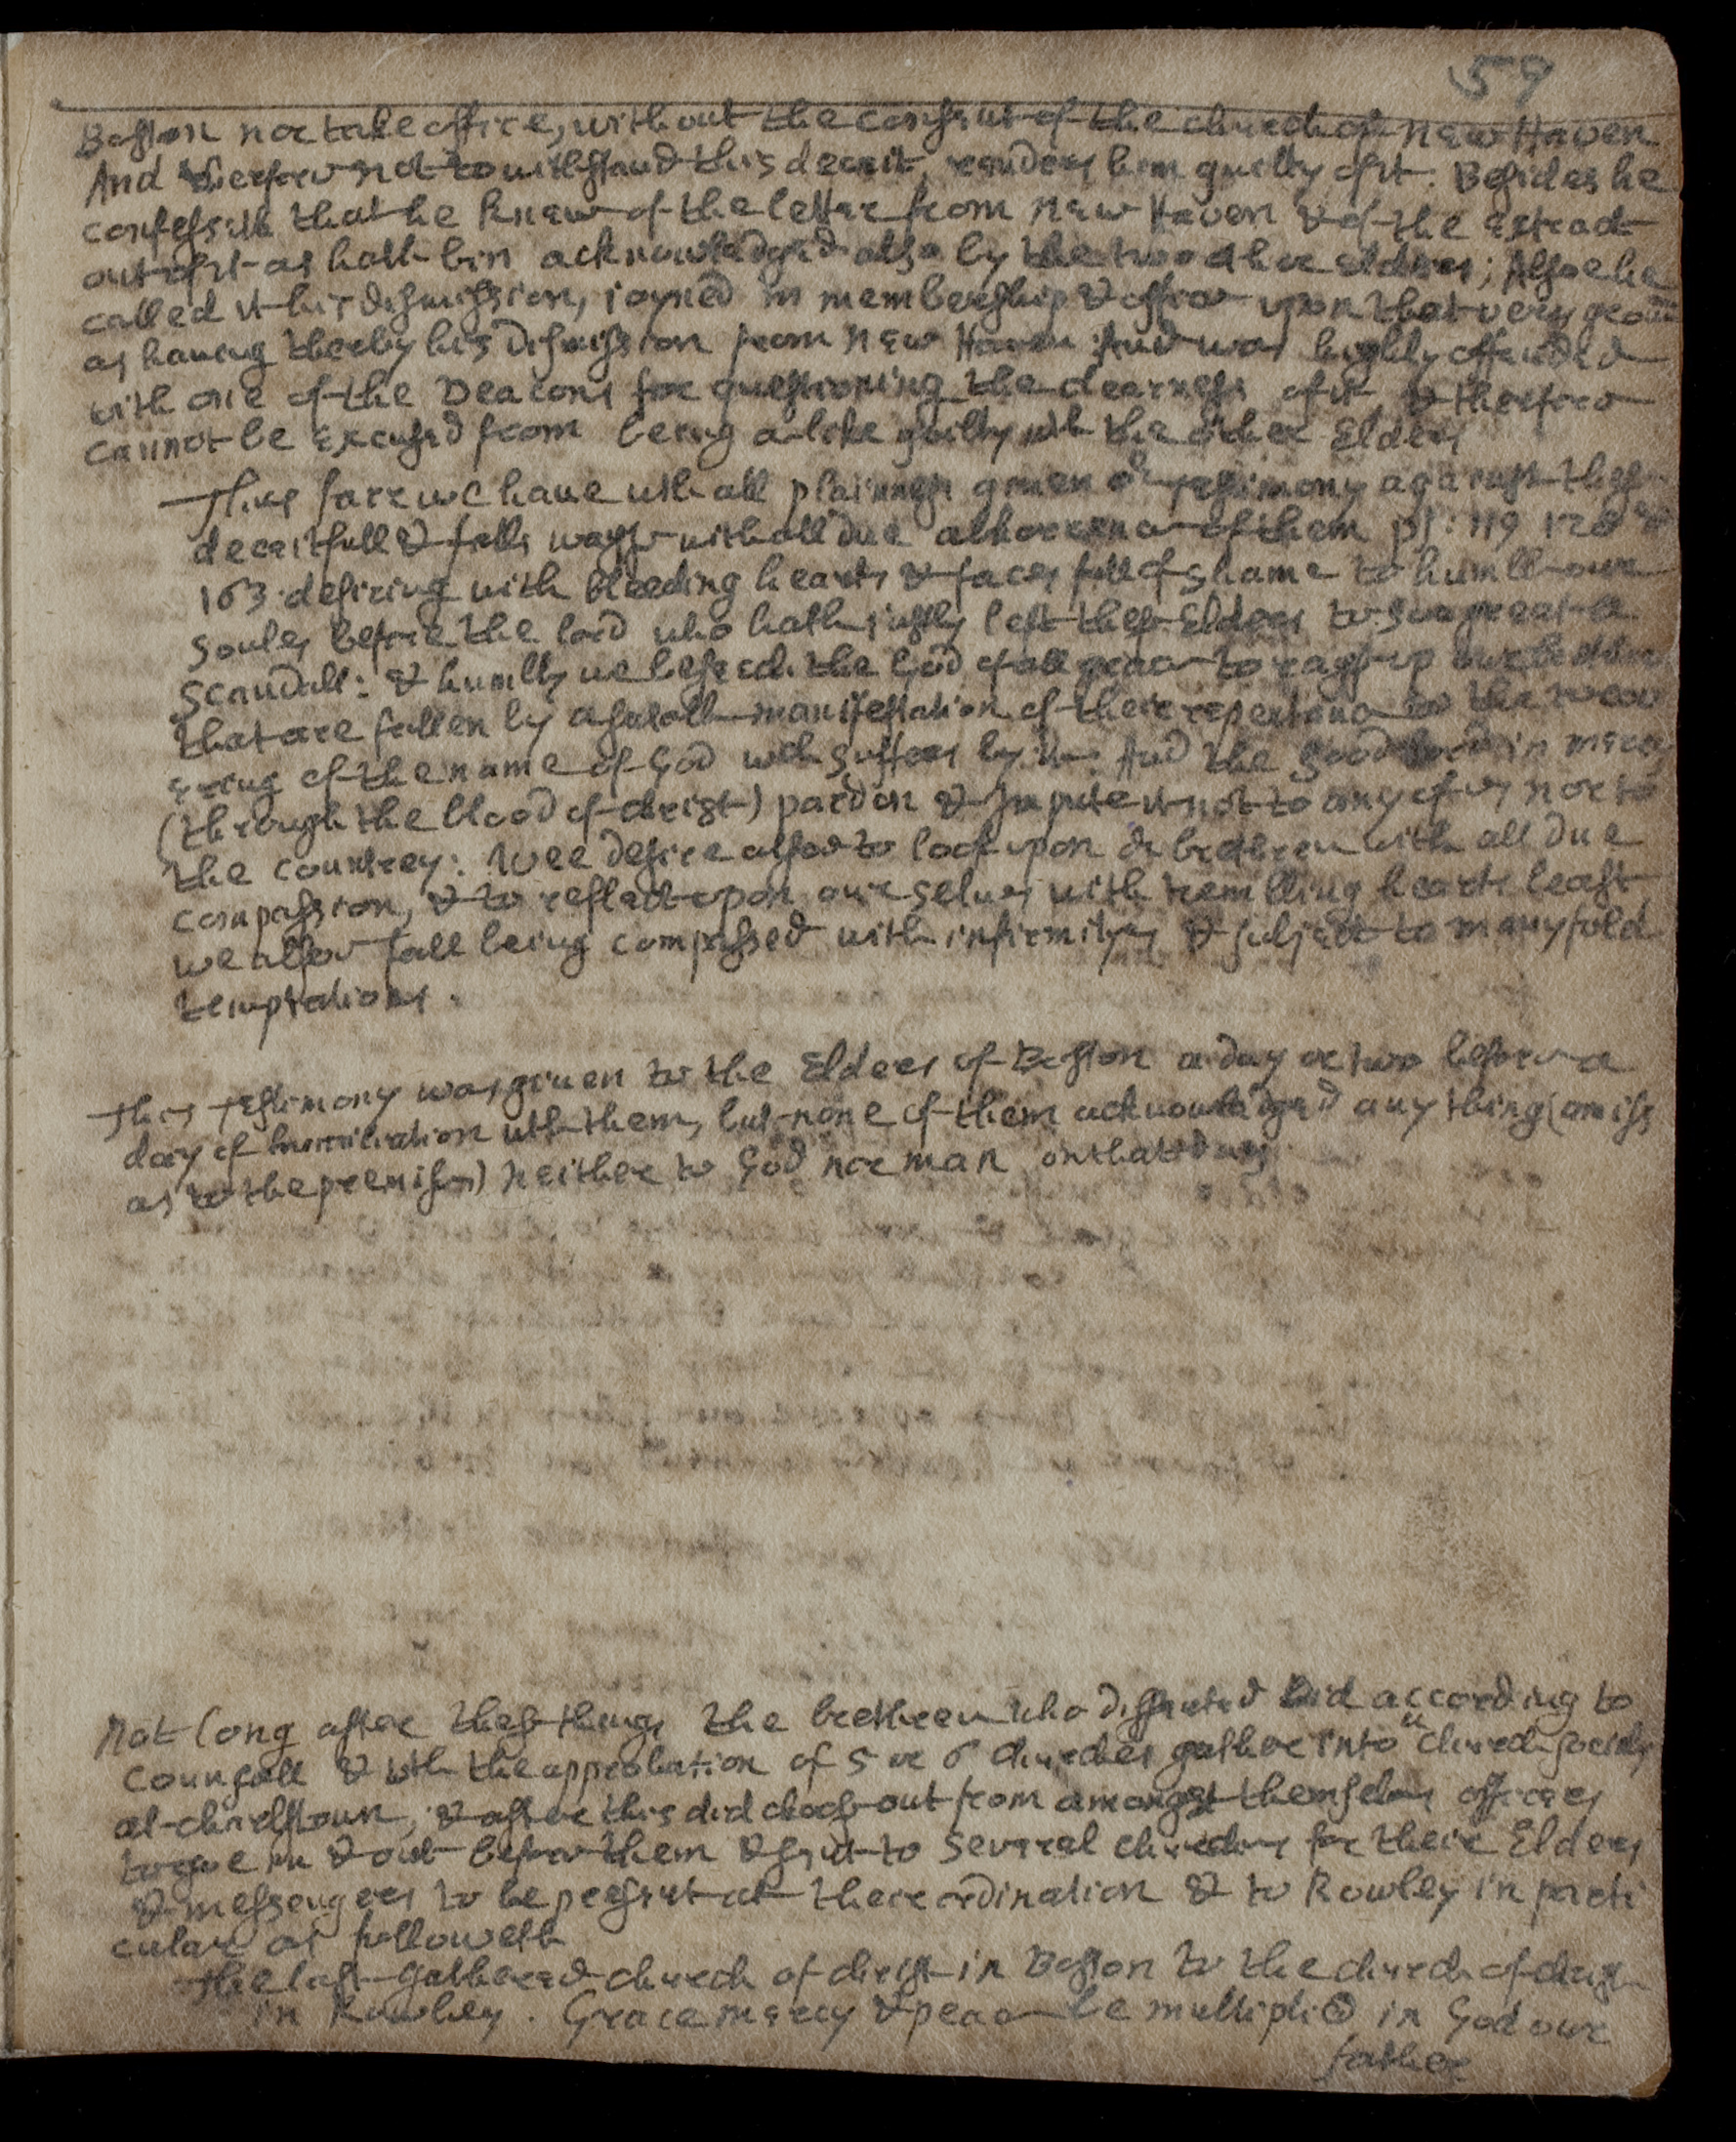 59
Boston nor take office, without the consent of the church of New Haven
And therfore not to withstand this deceit, renders him guilty of it. Besides he
confesseth that he knew of the letter from New Haven & of the extract
out of it as hath bin acknowledged also by the two other elders; Alsoe he
called it his dismission, joyned in membership & office upon that very ground
as haveing therby his dismission from New Haven And was highly offended
with one of the Deacons for questioning the clearness of it & therfore
cannot be excused from being alike guilty wth the other Elders
Thus farre we have with all plainness given or testimony against these
deceitfull & falls wayes with all due abhorrence of them ps: 119 128 &
163. desiring with bleeding hearts & faces full of shame to humble our
soules before the lord who hath justly left these Elders to soe great a
scandall: & humbly we beseech the God of all grace to rayse up our brethren
that are fallen by manifestation of their repentance to the recov
ering of the name of God wch suffers by it. And the good lord in mercy
(through the blood of christ) pardon & Impute it not to any of us nor to
the countrey: Wee desire alsoe to look upon or brethren with all due
compassion, & to reflect upon our selves with trembling hearts least
we allsoe fall being compassed with infirmityes & subject to manyfold
temptations.
This Testimony was given to the Elders of Boston a day or two before a
day of humiliation wth them, but none of them acknowledged any thing (amiss
as to the premises) neither to God nor man on that day
Not long after these things the brethren who dissented did according to
counsell & wth the approbation of 5 or 6 churches gather into a church society
at charlstown, & after this did choose out from amongst themselves officers
to goe in & out before them & sent to several churches for their Elders
& messengers to be present at their ordination & to Rowley in parti
cular as followeth
The last gathered church of christ in Boston to the church of christ
in Rowley. Grace mercy & peace be multiplied in God our
father